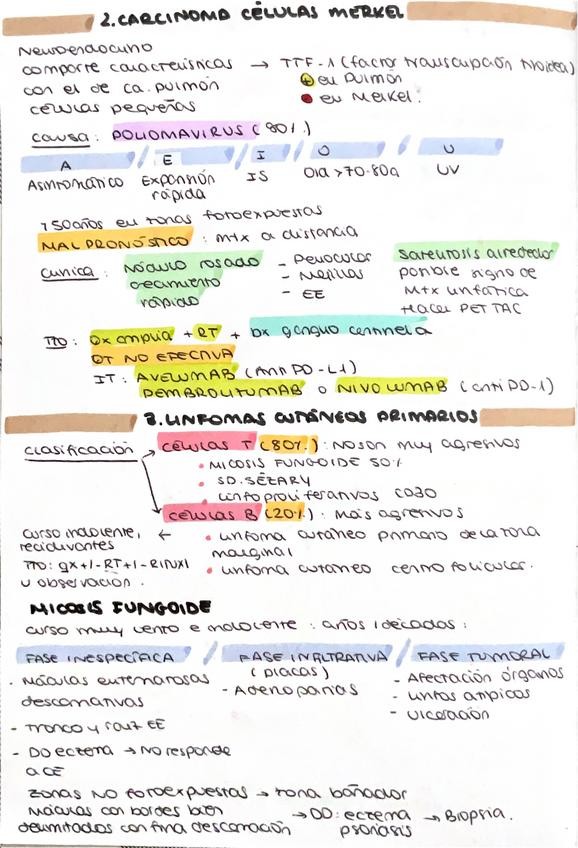 2. CARCINOMA CÉLULAS MERKEL
Neuroendocrino
comparte características → TTF-1 (factor transcripción tiroidea)
con el de ca. pulmón ⊕ en Pulmón
células pequeñas en Merkel.
causa: POLIOMAVIRUS (80%.)
A / E / I / O / U
Asintomático Expansión IS Old >70-80a UV
rápida
>50años en zonas fotoexpuestas
MAL PRONÓSTICO: mtx a distancia
Clínica: Nódulo rosado - Periocular Satelitosis alrededor
crecimiento - Mejillas posible signo de
rápido - EE Mtx linfática
Hacer PET TAC
TTO: Qx amplia + RT + bx ganglio centinela
QT NO EFECTIVA
IT: AVELUMAB (Anti PD-L1)
PEMBROLIZUMAB o NIVOLUMAB (anti PD-1)
3. LINFOMAS CUTÁNEOS PRIMARIOS
Clasificación → CÉLULAS T (80%.): No son muy agresivos
• MICOSIS FUNGOIDE 50%
• SD. SÉZARY
• Linfoproliferativos CD30
CÉLULAS B (20%.): más agresivos
curso indolente, ← • linfoma cutáneo primario de la zona
recidivantes marginal
TTO: qx +/- RT +/- RITUXI • linfoma cutáneo centro folicular.
u observación.
MICOSIS FUNGOIDE
curso muy lento e indolente: años / décadas:
FASE INESPECÍFICA / FASE INFILTRATIVA / FASE TUMORAL
(placas)
- Máculas eritematosas - Adenopatías - Afectación órganos
descamativas - Linfos atípicos
- Ulceración
- Tronco y raíz EE
- DD eczema → No responde
a CE
Zonas NO fotoexpuestas → zona bañador
Máculas con bordes bien → DD: eczema → Biopsia.
delimitados con fina descamación psoriasis